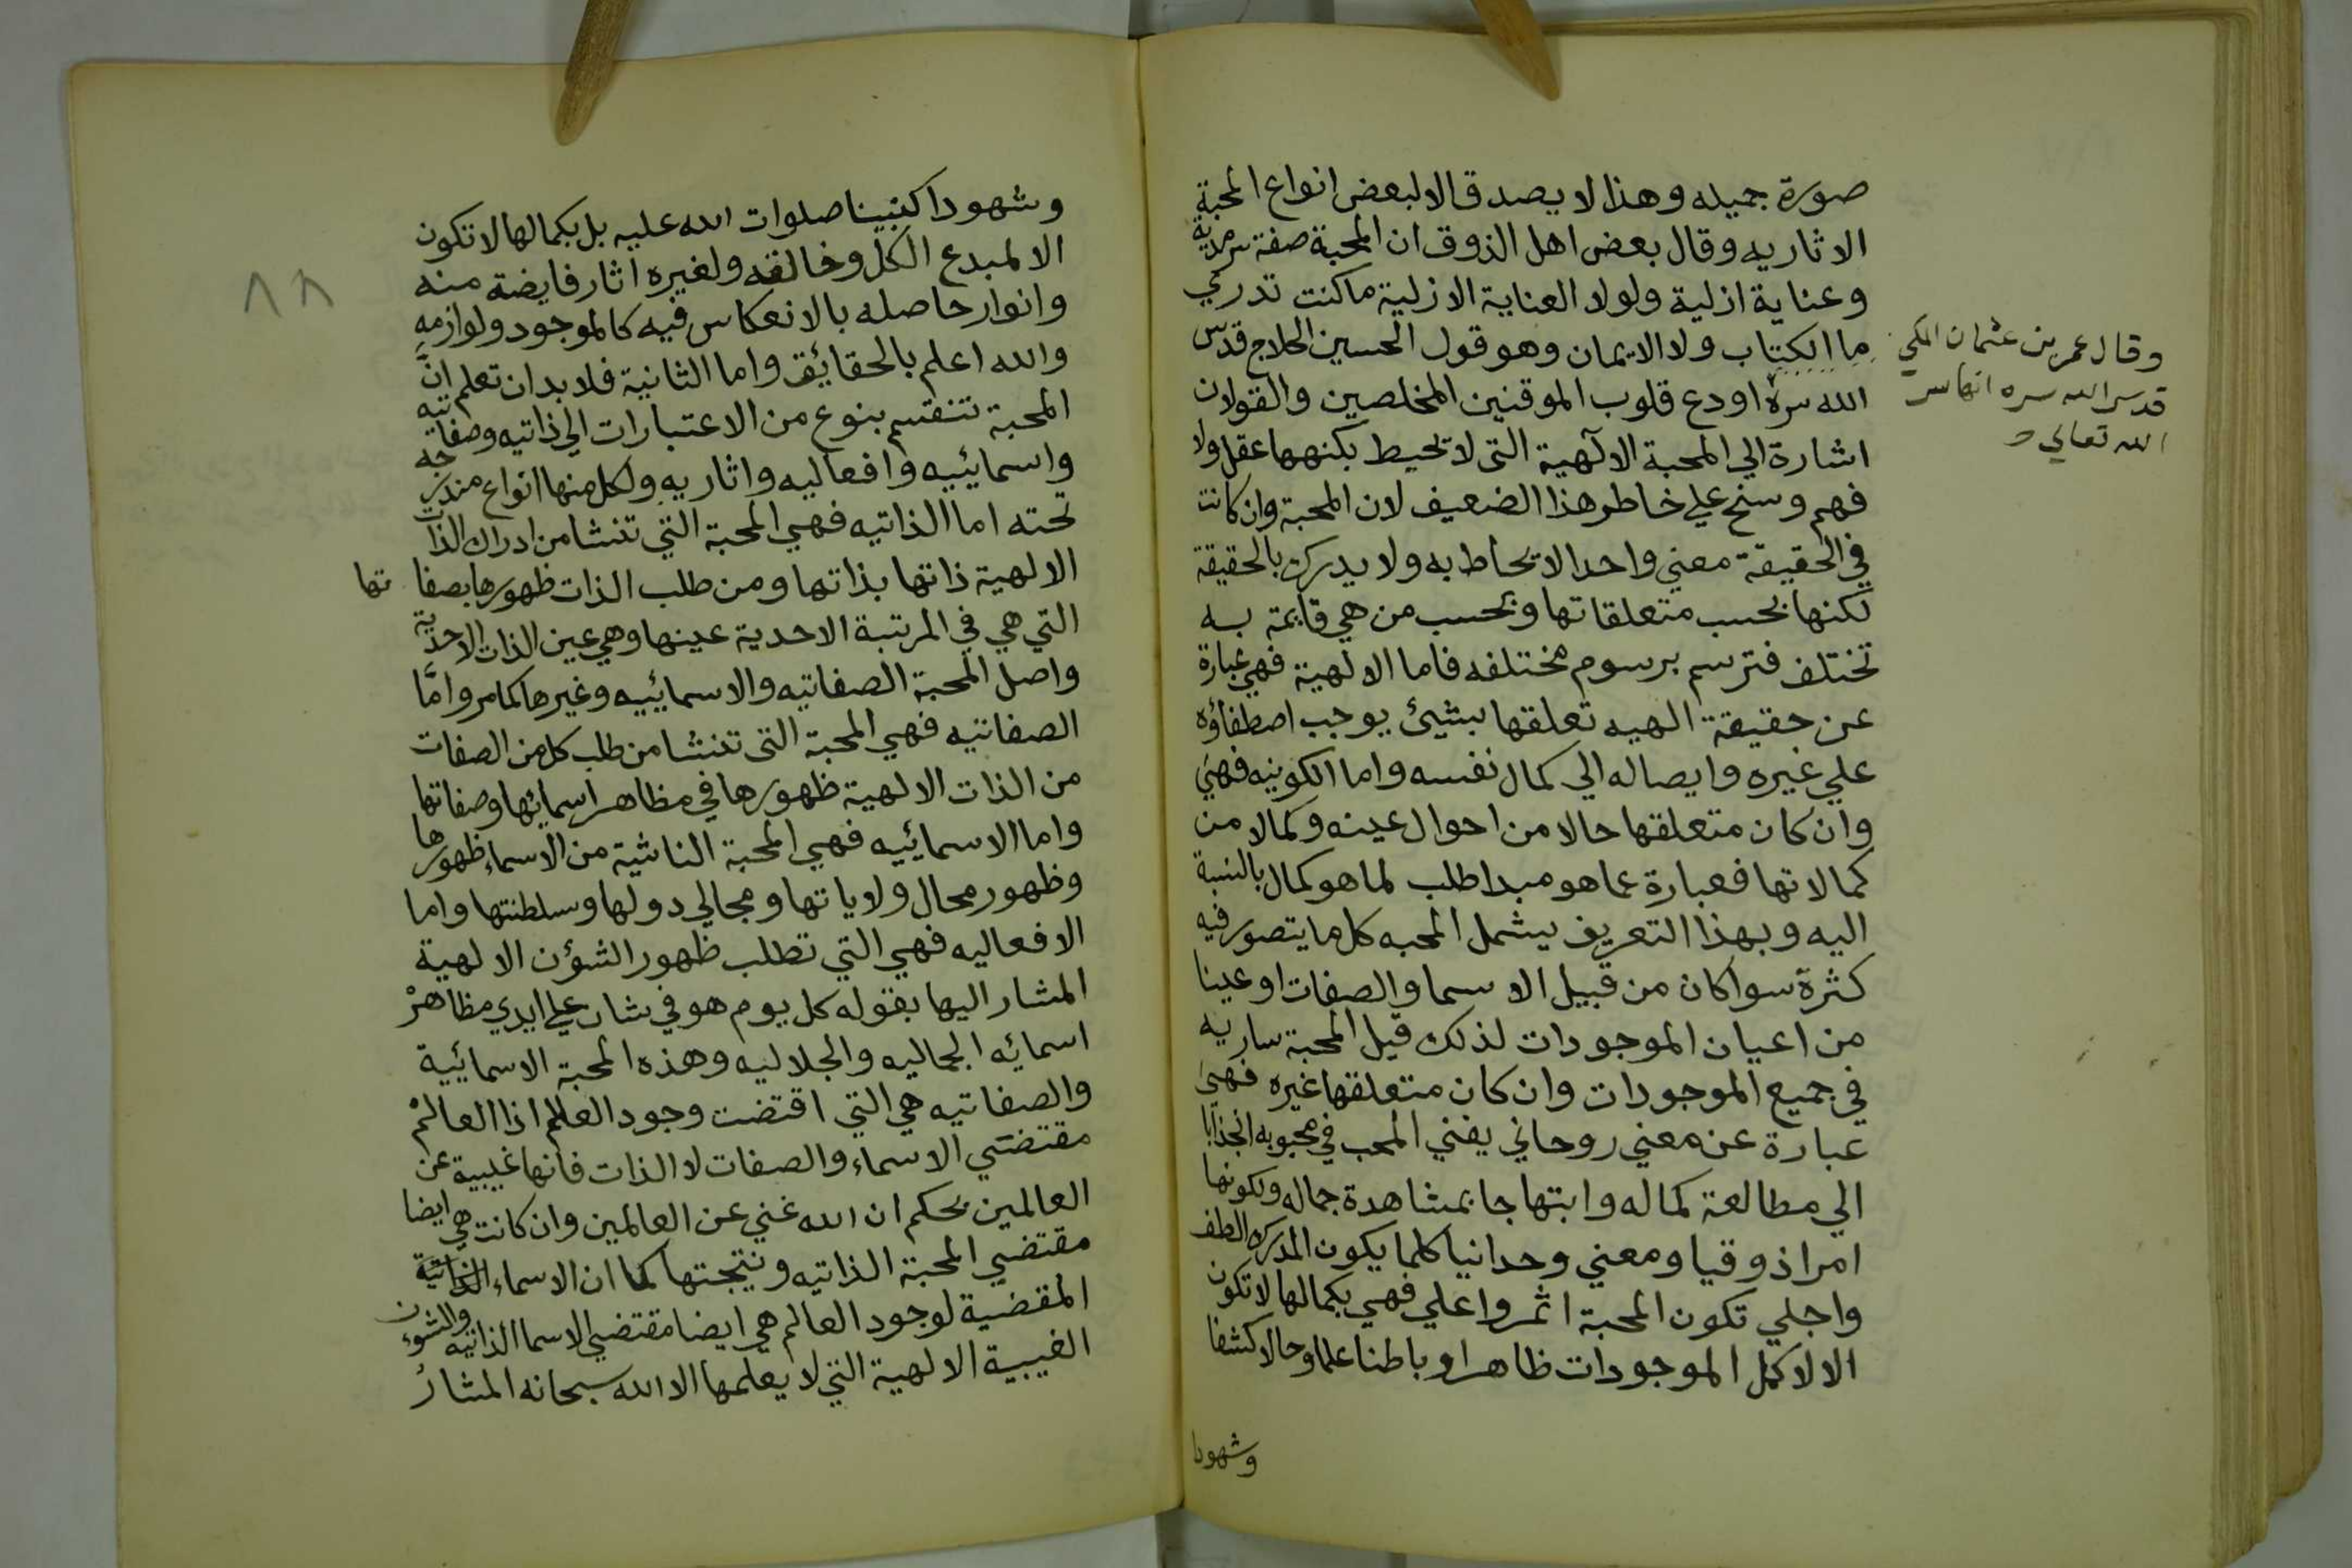 صورة جميله وهذا لا يصدق الا لبعض انواع المحبة
الاثاريه وقال بعض اهل الذوق ان المحبة صفة سرمدية
وعناية ازلية ولولا العناية الازلية ما كنت تدري
ما الكتاب ولا الايمان وهو قول الحسين الحلاج قدس
الله سره اودع قلوب الموقنين المخلصين والقولان
اشارة الي المحبة الالهية التى لا تحيط بكنهها عقل ولا
فهم وسنح علي خاطر هذا الضعيف لان المحبة وان كانت
في الحقيقة معني واحدا لا يحاط به ولا يدرك بالحقيقة
لكنها بحسب متعلقاتها وبحسب من هي قايمة به
تختلف فترسم برسوم مختلفه فاما الالهية فهي عبارة
عن حقيقة الهيه تعلقها بشيئ يوجب اصطفاؤه
علي غيره وايصاله الي كمال نفسه واما الكونيه فهي
وان كان متعلقها حالا من احوال عينه وكمالا من
كمالاتها فعبارة عما هو مبدا طلب لما هو كمال بالنسبة
اليه وبهذا التعريف يشمل المحبه كل ما يتصور فيه
كثرة سوا كان من قبيل الاسما والصفات او عينا
من اعيان الموجودات لذلك قيل المحبة ساريه
في جميع الموجودات وان كان متعلقها غيره فهي
عبارة عن معني روحاني يفني المحب في محبوبه انجذابا
الي مطالعة كماله وابتهاجا بمشاهدة جماله ولكونها
امرا ذوقيا ومعني وحدانيا كلما يكون المدرك الطف
واجلي تكون المحبة اثمر واعلي فهي بكمالها لا تكون
الا لاكمل الموجودات ظاهرا وباطنا علما وحالا كشفا
وشهودا
وقال عمر بن عثمان المكي
قدس الله سره انها سر
الله تعالي
٨٨
وشهودا كنبينا صلوات الله عليه بل بكمالها لا تكون
الا لمبدع الكل وخالقه ولغيره اثار فايضة منه
وانوار حاصله بالانعكاس فيه كالموجود ولوازمه
والله اعلم بالحقائق واما الثانية فلا بد ان تعلم ان
المحبة تنقسم بنوع من الاعتبارات الي ذاتيه وصفاتيه
واسمائييه وافعاليه واثاريه ولكل منها انواع مندرجه
تحته اما الذاتيه فهي المحبة التي تنشا من ادراك الذات
الالهية ذاتها بذاتها ومن طلب الذات ظهورها بصفاتها
التي هي في المرتبة الاحدية عينها وهي عين الذات الاحدية
واصل المحبة الصفاتيه والاسمائييه وغيرها كما مر واما
الصفاتيه فهي المحبة التى تنشا من طلب كل من الصفات
من الذات الالهية ظهورها في مظاهر اسمائها وصفاتها
واما الاسمائيه فهي المحبة الناشية من الاسماء ظهورها
وظهور محال ولاياتها ومجالي دولها وسلطنتها واما
الافعاليه فهي التي تطلب ظهور الشؤن الالهية
المشار اليها بقوله كل يوم هو في شان علي ايدي مظاهر
اسمائه الجماليه والجلاليه وهذه المحبة الاسمائيية
والصفاتيه هي التي اقتضت وجود العلام اذا العالم
مقتضي الاسماء والصفات لا الذات فانها غيبية عن
العالمين بحكم ان الله غني عن العالمين وان كانت هي ايضا
مقتضي المحبة الذاتيه ونتيجتها كما ان الاسماء الذاتية
المقضية لوجود العالم هي ايضا مقتضي الاسما الذاتيه والشؤن
الغيبية الالهية التي لا يعلمها الا الله سبحانه المشار